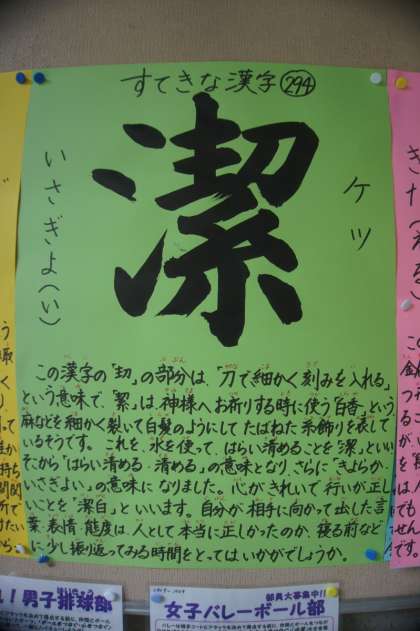 すてきな漢字 294
潔
ケツ
いさぎよ(い)
この漢字の「㓞」の部分は、「刀で細かく刻みを入れる」
という意味で、「絜」は、神様へお祈りする時に使う「白香」という
麻などを細かく裂いて白髪のようにして たばねた糸飾りを表して
いるそうです。これを、水を使って、はらい清めることを「潔」といい
そこから「はらい清める・清める」の意味となり、さらに「きよらか
いさぎよい」の意味になりました。心がきれいで行いが正し
いことを「潔白」といいます。自分が相手に向かって出した言
葉・表情・態度は、人として本当に正しかったのか、寝る前など
に少し振り返ってみる時間をとってはいかがでしょうか。
！男子排球部
部員大募集中!!
女子バレーボール部